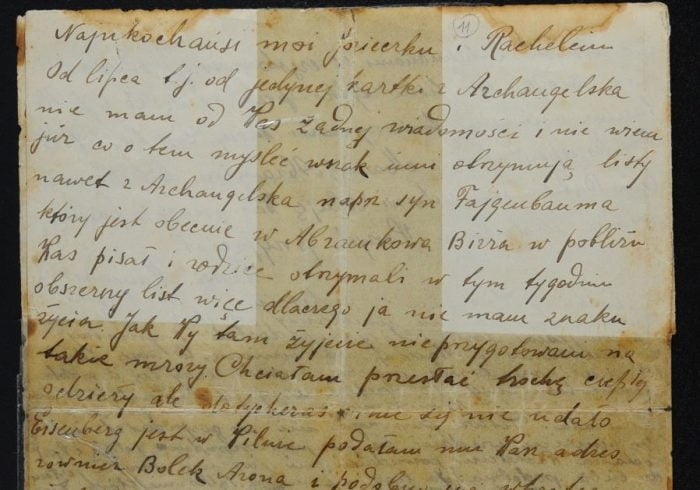 11
Najukochańsi moi Josierku i Racheleim
Od lipca t.j. od jedynej kartki z Archangelska
nie mam od Was żadnej wiadomości i nie wiem
już co o tem myśleć wszak inni otrzymują listy
nawet z Archangelska napr syn Fajgenbauma
który jest obecnie w Abramkowa Birża w pobliżu
Was pisał i rodzice otrzymali w tym tygodniu
obszerny list więc dlaczego ja nie mam znaku
życia. Jak Wy tam żyjecie nieprzygotowani na
takie mrozy. Chciałam przesłać trochę ciepłej
odzieży ale dotychczas mi się nie udało
Eisenberg jest w Wilnie podałam mu Wasz adres
również Bolek Arona i podobno